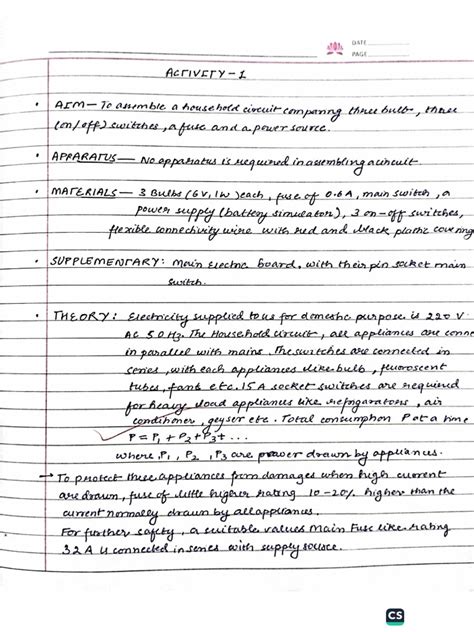 DATE
PAGE
ACTIVITY-1
• AIM— To assemble a household circuit comparing three bulb, three
(on/off) switches, a fuse and a power source.
• APPARATUS— No apparatus is required in assembling a circuit.
• MATERIALS— 3 Bulbs (6V, 1W) each, fuse of 0.6A, main switch, a
power supply (battery simulator), 3 on-off switches,
flexible connectivity wire with red and black plastic covering
• SUPPLEMENTARY: Main electric board, with their pin socket main
switch.
• THEORY: Electricity supplied to us for domestic purpose is 220 V
AC 50Hz. The Household circuit, all appliances are conne
in parallel with mains. The switches are connected in
series, with each appliances like bulb, fluoroscent
tubes, fans etc. 15A socket switches are required
for heavy load appliances like refrigarators, air
conditioner, geyser etc. Total consumption P at a time
P = P1 + P2 + P3 + ...
where P1, P2, P3 are power drawn by appliances.
→ To protect these appliances from damages when high current
are drawn, fuse of little higher rating 10-20% higher than the
current normally drawn by all appliances.
For further safety, a suitable values Main Fuse like rating
32A is connected in series with supply source.
CS